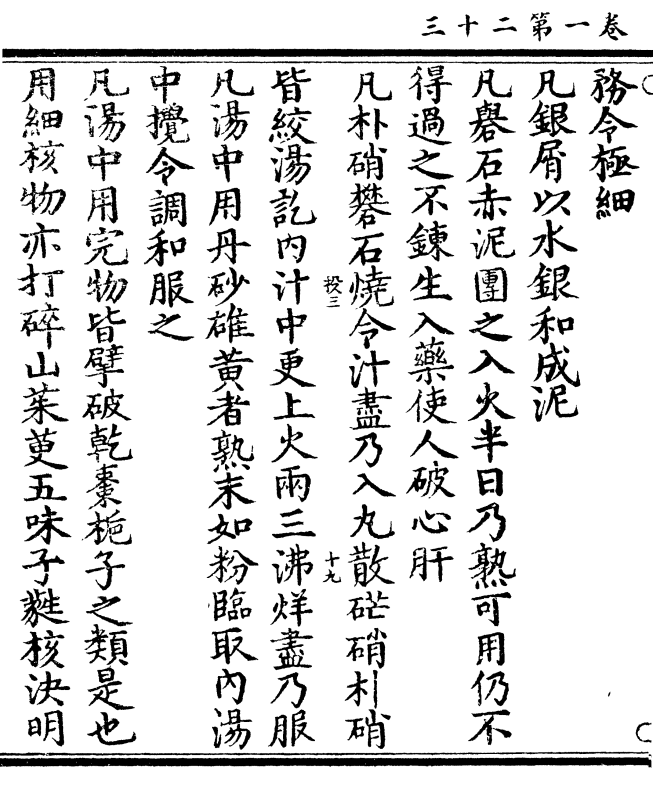 卷一第二十三
務令極細
凡銀屑以水銀和成泥
凡礜石赤泥團之入火半日乃熟可用仍不
得過之不鍊生入藥使人破心肝
凡朴硝礬石燒令汁盡乃入丸散芒硝朴硝
投三
十九
皆絞湯訖內汁中更上火兩三沸烊盡乃服
凡湯中用丹砂雄黃者熟末如粉臨取內湯
中攪令調和服之
凡湯中用完物皆擘破乾棗梔子之類是也
用細核物亦打碎山茱萸五味子蕤核決明